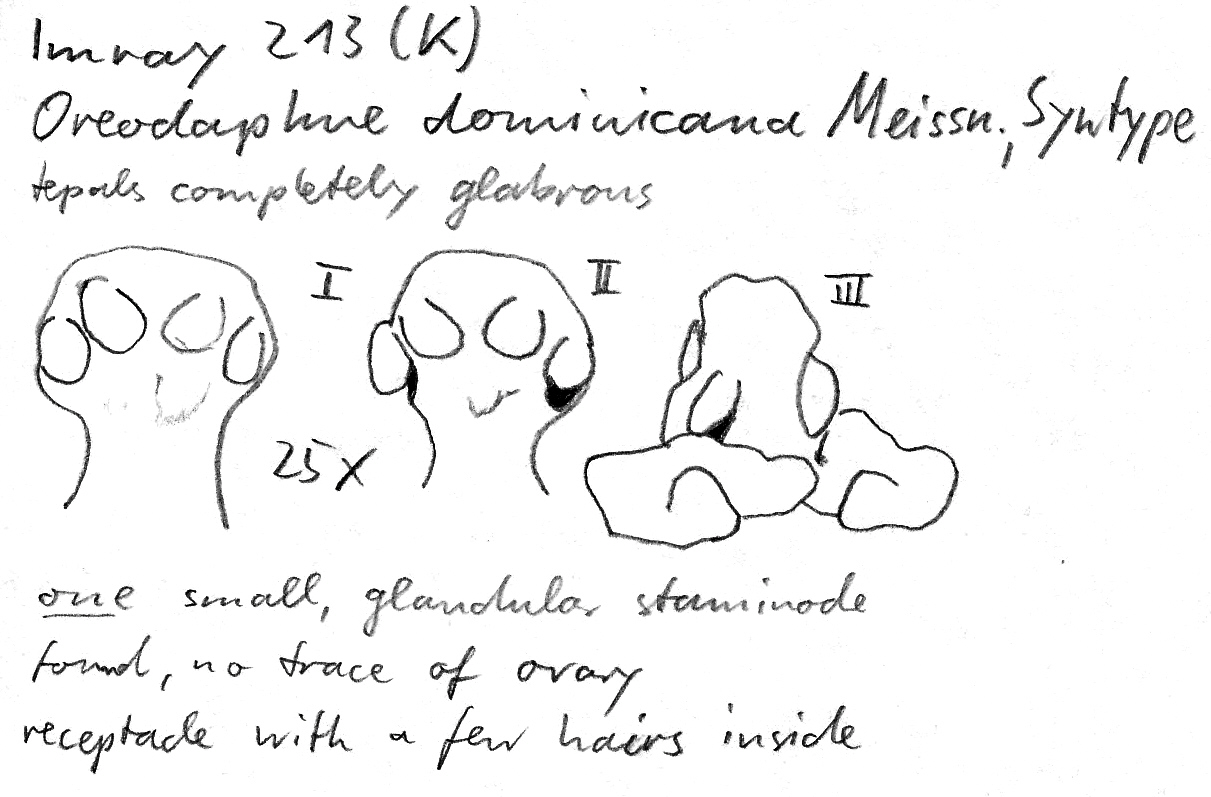 Imray 213 (K)
Oreodaphne dominicana Meissn., Syntype
tepals completely glabrous
I II III
25x
one small, glandular staminode
found, no trace of ovary
receptacle with a few hairs inside